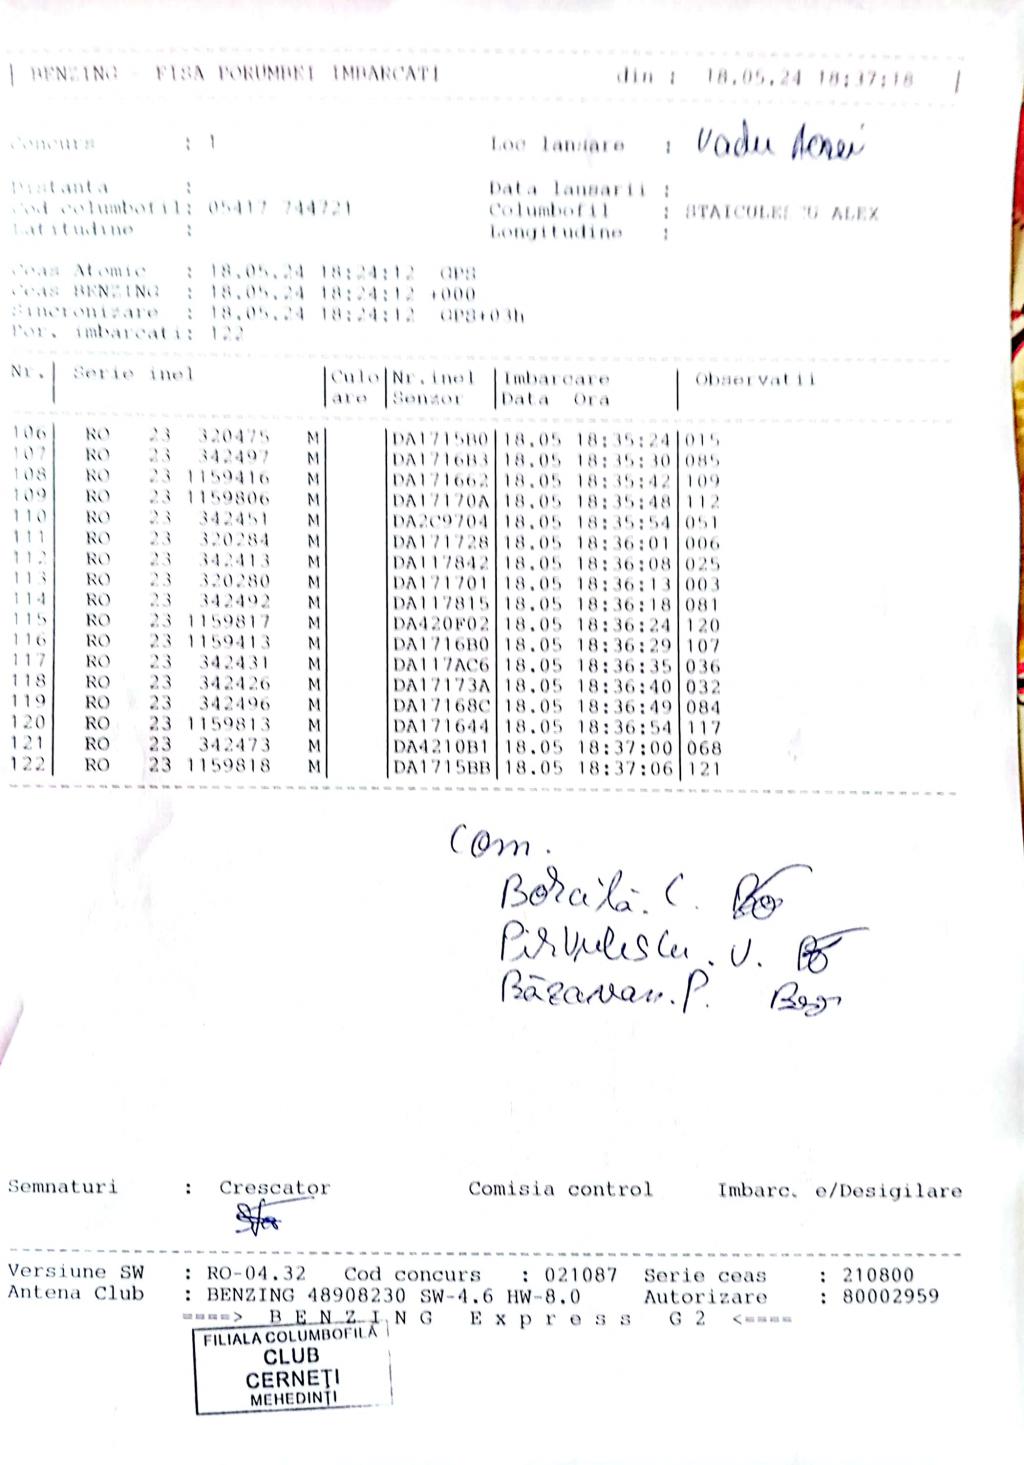 | BENZING - FISA PORUMBEI IMBARCATI din : 18.05.24 18:37:18 |
Concurs : 1 Loc lansare : Vadu
Distanta : Data lansarii :
Cod columbofil: 05417 744721 Columbofil : STAICULESCU ALEX
Latitudine : Longitudine :
Ceas Atomic : 18.05.24 18:24:12 GPS
Ceas BENZING : 18.05.24 18:24:12 +000
Sincronizare : 18.05.24 18:24:12 GPS+03h
Por. imbarcati: 122
Nr.| Serie inel |Culo|Nr.inel |Imbarcare | Observatii
|are |Senzor |Data Ora |
106| RO 23 320475 M| |DA1715B0|18.05 18:35:24|015
107| RO 23 342497 M| |DA1716B3|18.05 18:35:30|085
108| RO 23 1159416 M| |DA171662|18.05 18:35:42|109
109| RO 23 1159806 M| |DA17170A|18.05 18:35:48|112
110| RO 23 342451 M| |DA2C9704|18.05 18:35:54|051
111| RO 23 320284 M| |DA171728|18.05 18:36:01|006
112| RO 23 342413 M| |DA117842|18.05 18:36:08|025
113| RO 23 320280 M| |DA171701|18.05 18:36:13|003
114| RO 23 342492 M| |DA117815|18.05 18:36:18|081
115| RO 23 1159817 M| |DA420F02|18.05 18:36:24|120
116| RO 23 1159413 M| |DA1716B0|18.05 18:36:29|107
117| RO 23 342431 M| |DA117AC6|18.05 18:36:35|036
118| RO 23 342426 M| |DA17173A|18.05 18:36:40|032
119| RO 23 342496 M| |DA17168C|18.05 18:36:49|084
120| RO 23 1159813 M| |DA171644|18.05 18:36:54|117
121| RO 23 342473 M| |DA4210B1|18.05 18:37:00|068
122| RO 23 1159818 M| |DA1715BB|18.05 18:37:06|121
Com.
Borcilă. C.
Pirvulescu. V.
Băzăvan. P.
Semnaturi : Crescator Comisia control Imbarc. e/Desigilare
Versiune SW : RO-04.32 Cod concurs : 021087 Serie ceas : 210800
Antena Club : BENZING 48908230 SW-4.6 HW-8.0 Autorizare : 80002959
====> B E N Z I N G E x p r e s s G 2 <====
FILIALA COLUMBOFILĂ
CLUB
CERNEȚI
MEHEDINȚI